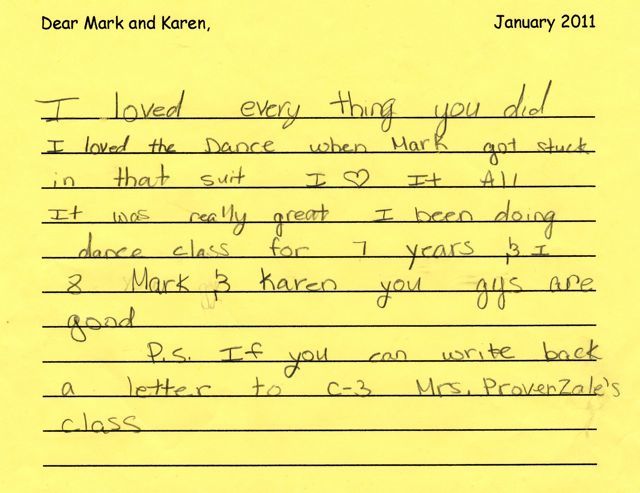 Dear Mark and Karen, January 2011
I loved every thing you did
I loved the Dance when Mark got stuck
in that suit I ♡ It All
It was really great I been doing
dance class for 7 years & I
8 Mark & Karen you gys are
good
P.s. If you can write back
a letter to C-3 Mrs. ProvenZale's
class